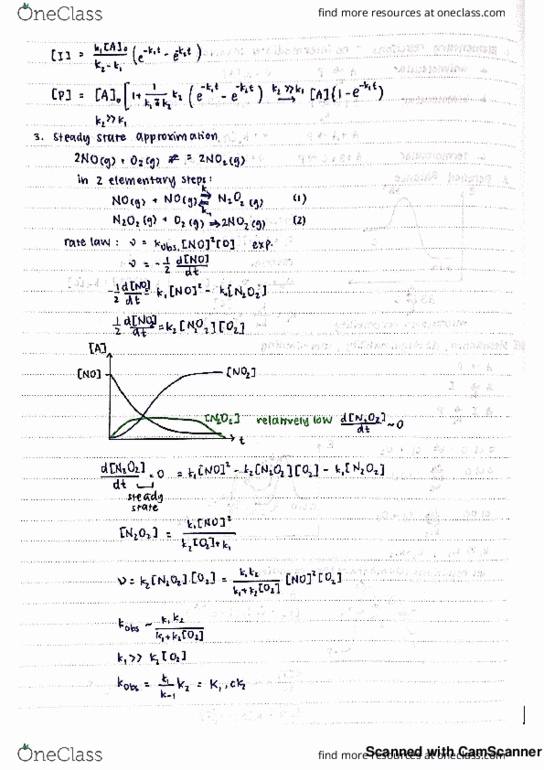 OneClass
find more resources at oneclass.com
[I] = k₁[A]₀ / k₂ - k₁ (e^-k₁t - e^k₂t)
[P] = [A]₀ [1 + 1 / k₁ k₂ (e^-k₁t - e^-k₂t) k₂ ≫ k₁ → [A](1 - e^-k₁t)
k₂ ≫ k₁
3. steady state approximation
2NO(g) + O₂(g) ⇌ = 2NO₂(g)
in 2 elementary steps:
NO(g) + NO(g) k₁ ⇌ k₋₁ N₂O₂(g) (1)
N₂O₂(g) + O₂(g) → 2NO₂(g) (2)
rate law: v = k obs. [NO]²[O] exp.
v = - 1/2 d[NO]/dt
-1/2 d[NO]/dt = k₁[NO]² - k₁[N₂O₂]
1/2 d[NO]/dt = k₂[NO₂][O₂]
[A]
[NO]
[NO₂]
[N₂O₂] relatively low d[N₂O₂]/dt ~ 0
t
d[N₂O₂]/dt = 0 = k₁[NO]² - k₂[N₂O₂][O₂] - k₁[N₂O₂]
steady
state
[N₂O₂] = k₁[NO]² / k₂[O₂] + k₁
v = k₂[N₂O₂].[O₂] = k₁k₂ / k₁ + k₂[O₂] [NO]²[O₂]
k obs ~ k₁k₂ / k₁ + k₂[O₂]
k₁ >> k₂[O₂]
k obs = k₁ / k-1 k₂ = K₁,ck₂
OneClass
find more resources at oneclass.com
Scanned with CamScanner